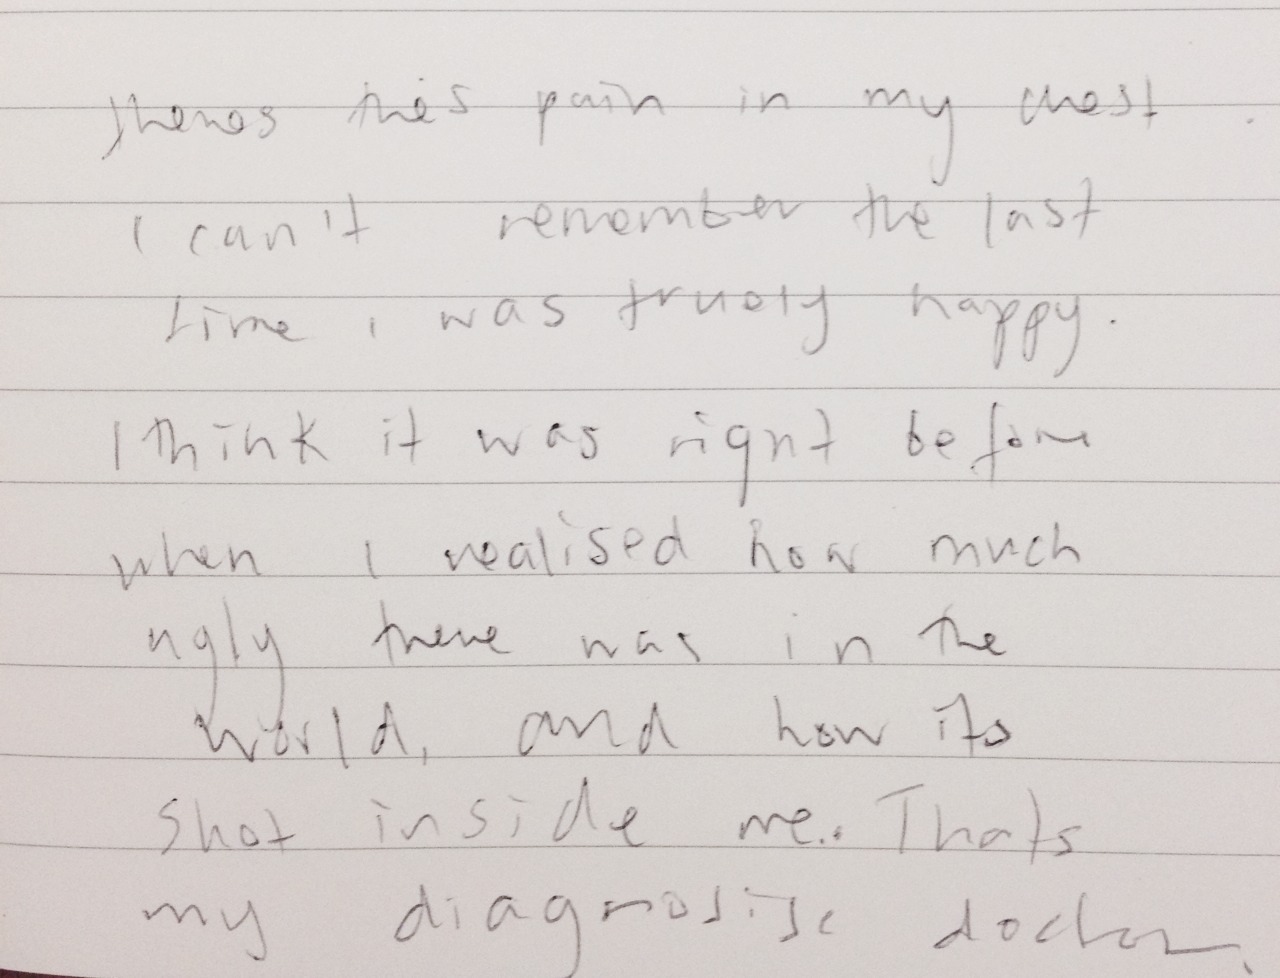 theres this pain in my chest.
I can't remember the last
time i was truely happy.
I think it was right before
when I realised how much
ugly there was in the
world, and how its
shot inside me.. Thats
my diagnosise doctor.